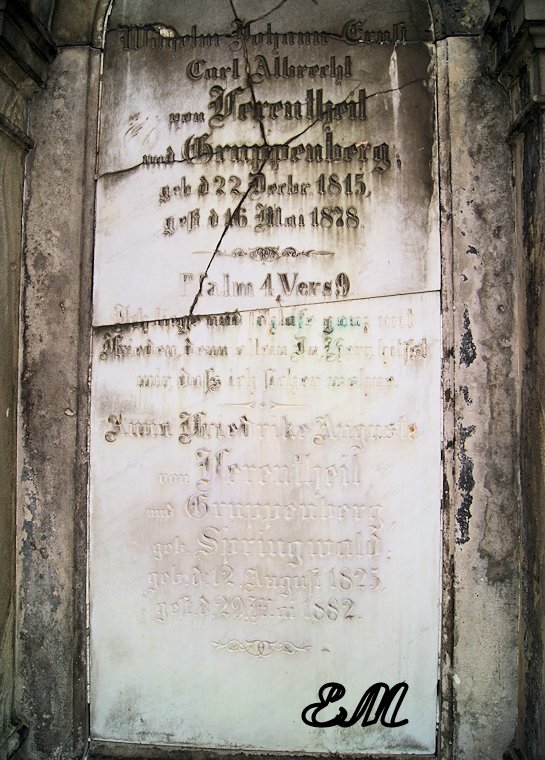 Wilhelm Johann Ernst
Carl Albrecht
von Verentheil
und Gruppenberg,
geb d 22 Decbr. 1815,
gest d 16 Mai 1878.
Psalm 4 Vers 9
Ich liege und schlafe ganz mit
Frieden denn allein Du Herr hilfst
mir daß ich sicher wohne.
Anna Friedrike Auguste
von Verentheil
und Gruppenberg,
geb. Springwald,
geb. d. 12. August 1825,
gest. d. 29. Mai 1882.
EM